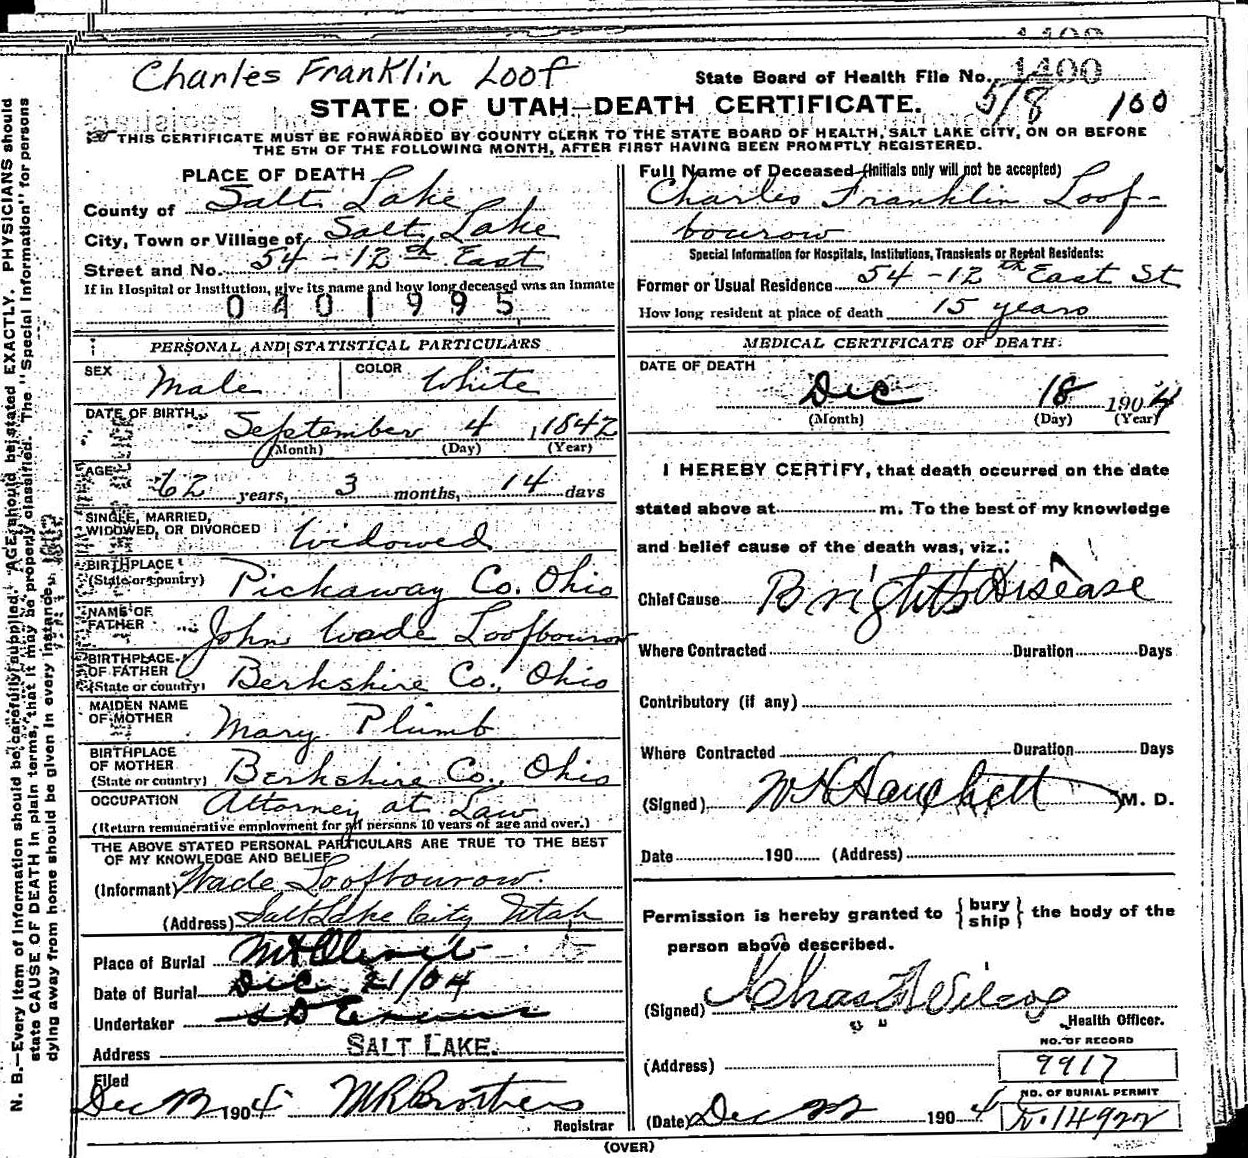 1400
Charles Franklin Loof
State Board of Health File No. 1400
5/8 100
STATE OF UTAH—DEATH CERTIFICATE.
THIS CERTIFICATE MUST BE FORWARDED BY COUNTY CLERK TO THE STATE BOARD OF HEALTH, SALT LAKE CITY, ON OR BEFORE
THE 5TH OF THE FOLLOWING MONTH, AFTER FIRST HAVING BEEN PROMPTLY REGISTERED.
N. B.—Every item of information should be carefully supplied. AGE should be stated EXACTLY. PHYSICIANS should
state CAUSE OF DEATH in plain terms, that it may be properly classified. The "Special Information" for persons
dying away from home should be given in every instance.
PLACE OF DEATH
County of Salt Lake
City, Town or Village of Salt Lake
Street and No. 54 - 12th East
If in Hospital or Institution, give its name and how long deceased was an Inmate
0401995
PERSONAL AND STATISTICAL PARTICULARS
SEX Male COLOR White
DATE OF BIRTH September 4, 1842
(Month) (Day) (Year)
AGE 62 years, 3 months, 14 days
SINGLE, MARRIED,
WIDOWED, OR DIVORCED Widowed
BIRTHPLACE
(State or country) Pickaway Co. Ohio
NAME OF
FATHER John Wade Loofbourow
BIRTHPLACE
OF FATHER
(State or country) Berkshire Co., Ohio
MAIDEN NAME
OF MOTHER Mary Plumb
BIRTHPLACE
OF MOTHER
(State or country) Berkshire Co., Ohio
OCCUPATION Attorney at Law
(Return remunerative employment for all persons 10 years of age and over.)
THE ABOVE STATED PERSONAL PARTICULARS ARE TRUE TO THE BEST
OF MY KNOWLEDGE AND BELIEF
(Informant) Wade Loofbourow.
(Address) Salt Lake City Utah
Place of Burial Mt Olivet
Date of Burial Dec 21/04
Undertaker S D Evans
Address SALT LAKE.
Filed
Dec 1904 M R Brothers
Registrar
Full Name of Deceased (Initials only will not be accepted)
Charles Franklin Loof-
bourow
Special Information for Hospitals, Institutions, Transients or Recent Residents:
Former or Usual Residence 54 - 12th East St
How long resident at place of death 15 years
MEDICAL CERTIFICATE OF DEATH.
DATE OF DEATH
Dec 18 1904
(Month) (Day) (Year)
I HEREBY CERTIFY, that death occurred on the date
stated above at m. To the best of my knowledge
and belief cause of the death was, viz.:
Chief Cause Brights Disease
Where Contracted Duration Days
Contributory (if any)
Where Contracted Duration Days
(Signed) M. D.
Date 190 (Address)
Permission is hereby granted to {bury
ship} the body of the
person above described.
(Signed) Chas F Wilcox
Health Officer.
NO. OF RECORD
(Address) 9917
NO. OF BURIAL PERMIT
(Date) Dec 22 1904 14922
(OVER)